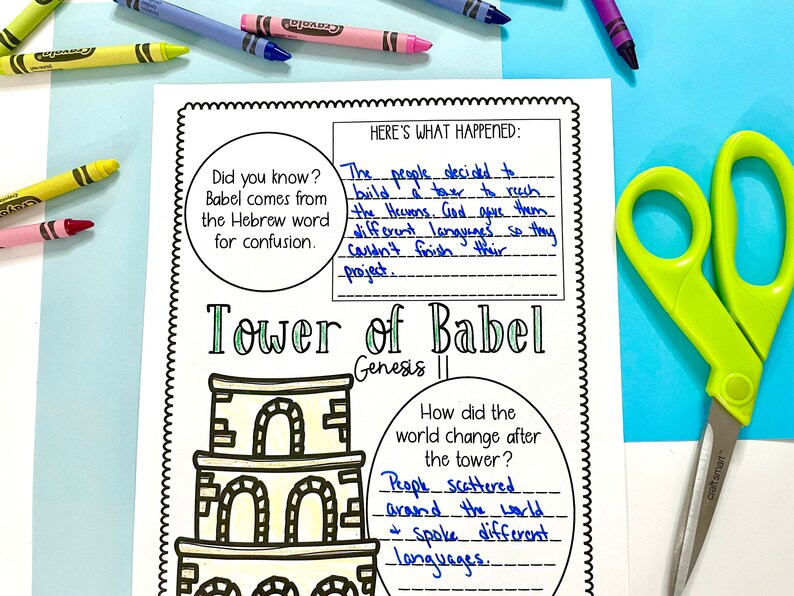 Crayola
Crayola
Crayola
HERE'S WHAT HAPPENED:
The people decided to
build a tower to reach
the Heavens. God gave them
different languages so they
couldn't finish their
project.
Did you know?
Babel comes from
the Hebrew word
for confusion.
Tower of Babel
Genesis 11
How did the
world change after
the tower?
People scattered
around the world
+ spoke different
languages.
craftsmart™